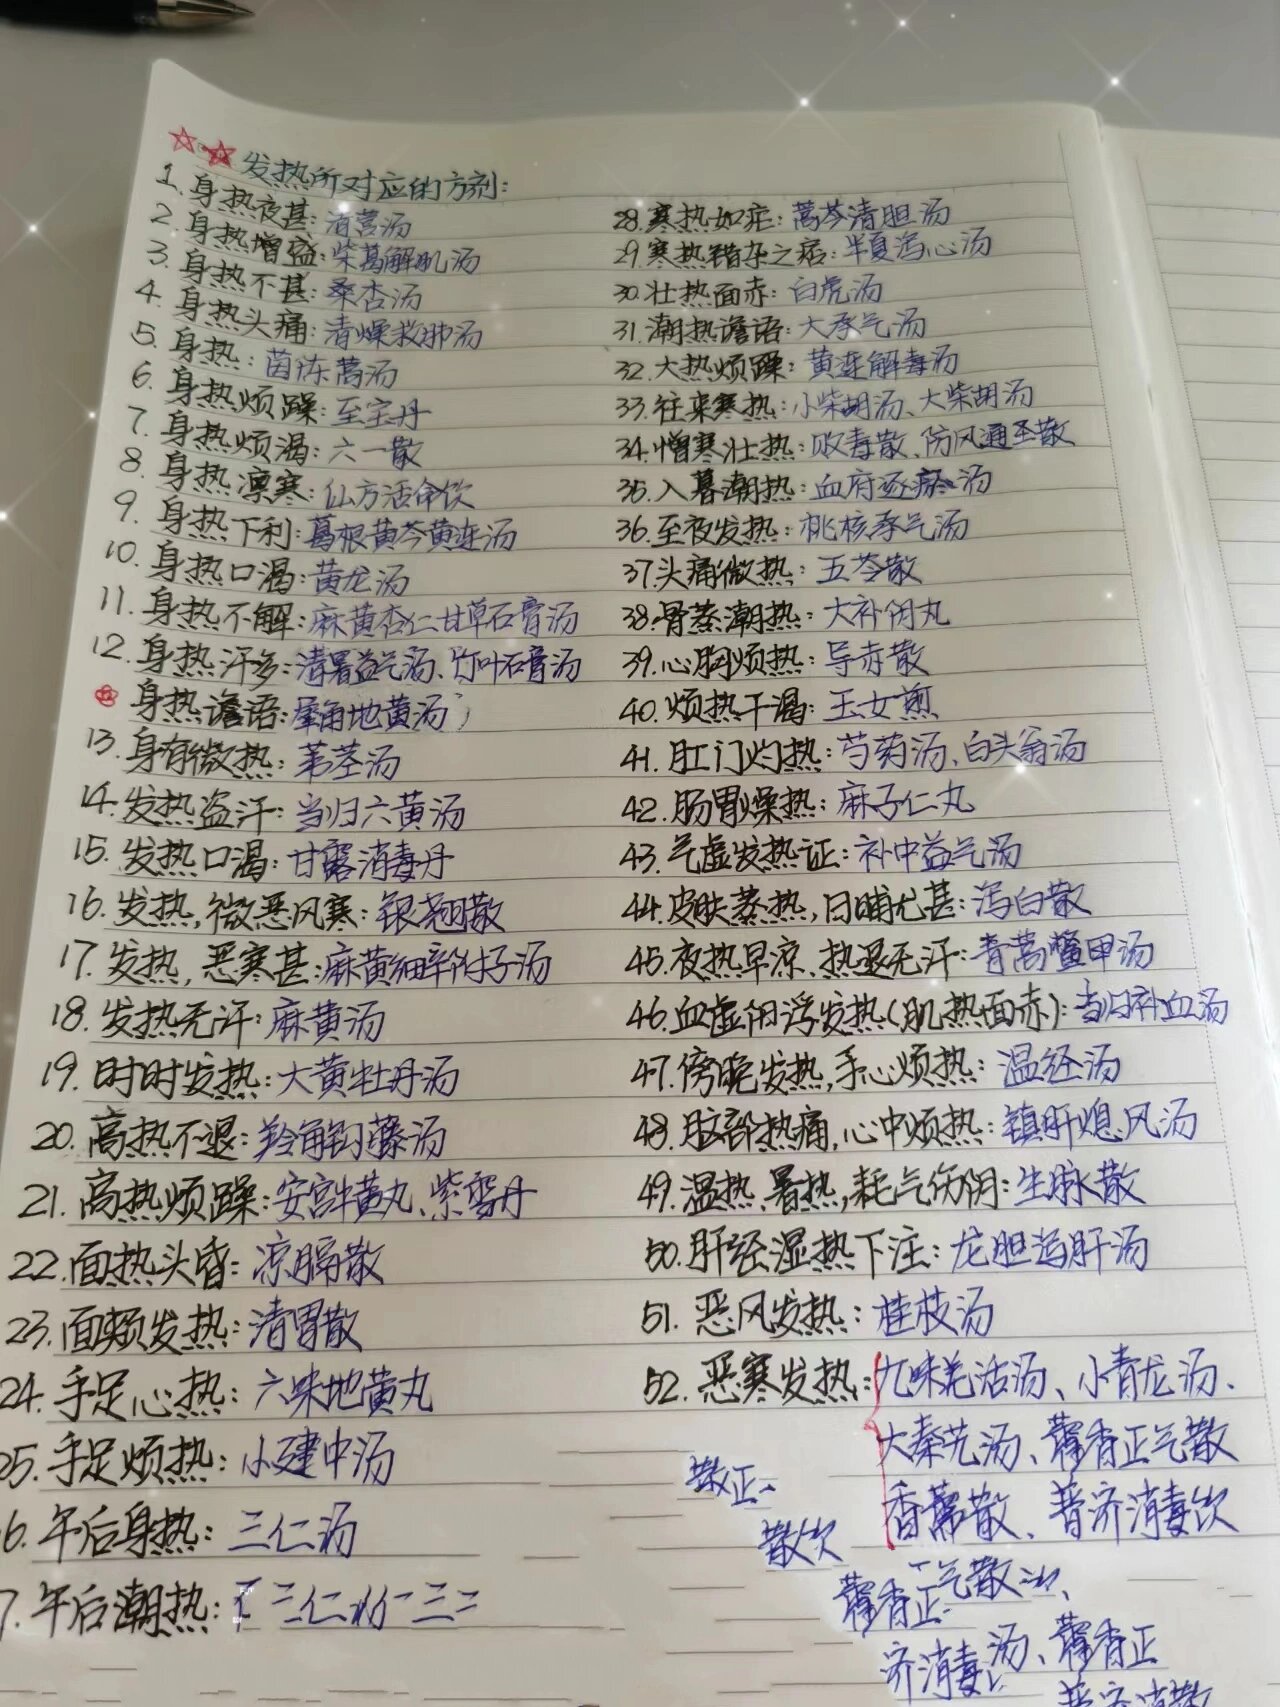 发热所对应的方剂:
1.身热夜甚:清营汤
2.身热增盛:柴葛解肌汤
3.身热不甚:桑杏汤
4.身热头痛:清燥救肺汤
5.身热:茵陈蒿汤
6.身热烦躁:至宝丹
7.身热烦渴:六一散
8.身热凛寒:仙方活命饮
9.身热下利:葛根黄芩黄连汤
10.身热口渴:黄龙汤
11.身热不解:麻黄杏仁甘草石膏汤
12.身热汗多:清暑益气汤、竹叶石膏汤
身热谵语:犀角地黄汤
13.身有微热:苇茎汤
14.发热盗汗:当归六黄汤
15.发热口渴:甘露消毒丹
16.发热,微恶风寒:银翘散
17.发热,恶寒甚:麻黄细辛附子汤
18.发热无汗:麻黄汤
19.时时发热:大黄牡丹汤
20.高热不退:羚角钩藤汤
21.高热烦躁:安宫牛黄丸、紫雪丹
22.面热头昏:凉膈散
23.面颊发热:清胃散
24.手足心热:六味地黄丸
25.手足烦热:小建中汤
6.午后身热:三仁汤
7.午后潮热:
28.寒热如疟:蒿芩清胆汤
29.寒热错杂之痞:半夏泻心汤
30.壮热面赤:白虎汤
31.潮热谵语:大承气汤
32.大热烦躁:黄连解毒汤
33.往来寒热:小柴胡汤、大柴胡汤
34.憎寒壮热:败毒散、防风通圣散
35.入暮潮热:血府逐瘀汤
36.至夜发热:桃核承气汤
37.头痛微热:五苓散
38.骨蒸潮热:大补阴丸
39.心胸烦热:导赤散
40.烦热干渴:玉女煎
41.肛门灼热:芍药汤、白头翁汤
42.肠胃燥热:麻子仁丸
43.气虚发热证:补中益气汤
44.皮肤蒸热,日晡尤甚:泻白散
45.夜热早凉、热退无汗:青蒿鳖甲汤
46.血虚阳浮发热(肌热面赤):当归补血汤
47.傍晚发热,手心烦热:温经汤
48.脘部热痛,心中烦热:镇肝熄风汤
49.温热、暑热,耗气伤阴:生脉散
50.肝经湿热下注:龙胆泻肝汤
51.恶风发热:桂枝汤
52.恶寒发热:九味羌活汤、小青龙汤、
大秦艽汤、藿香正气散
香薷散、普济消毒饮
散正
散饮
气散
藿香正
济消毒 汤、藿香正